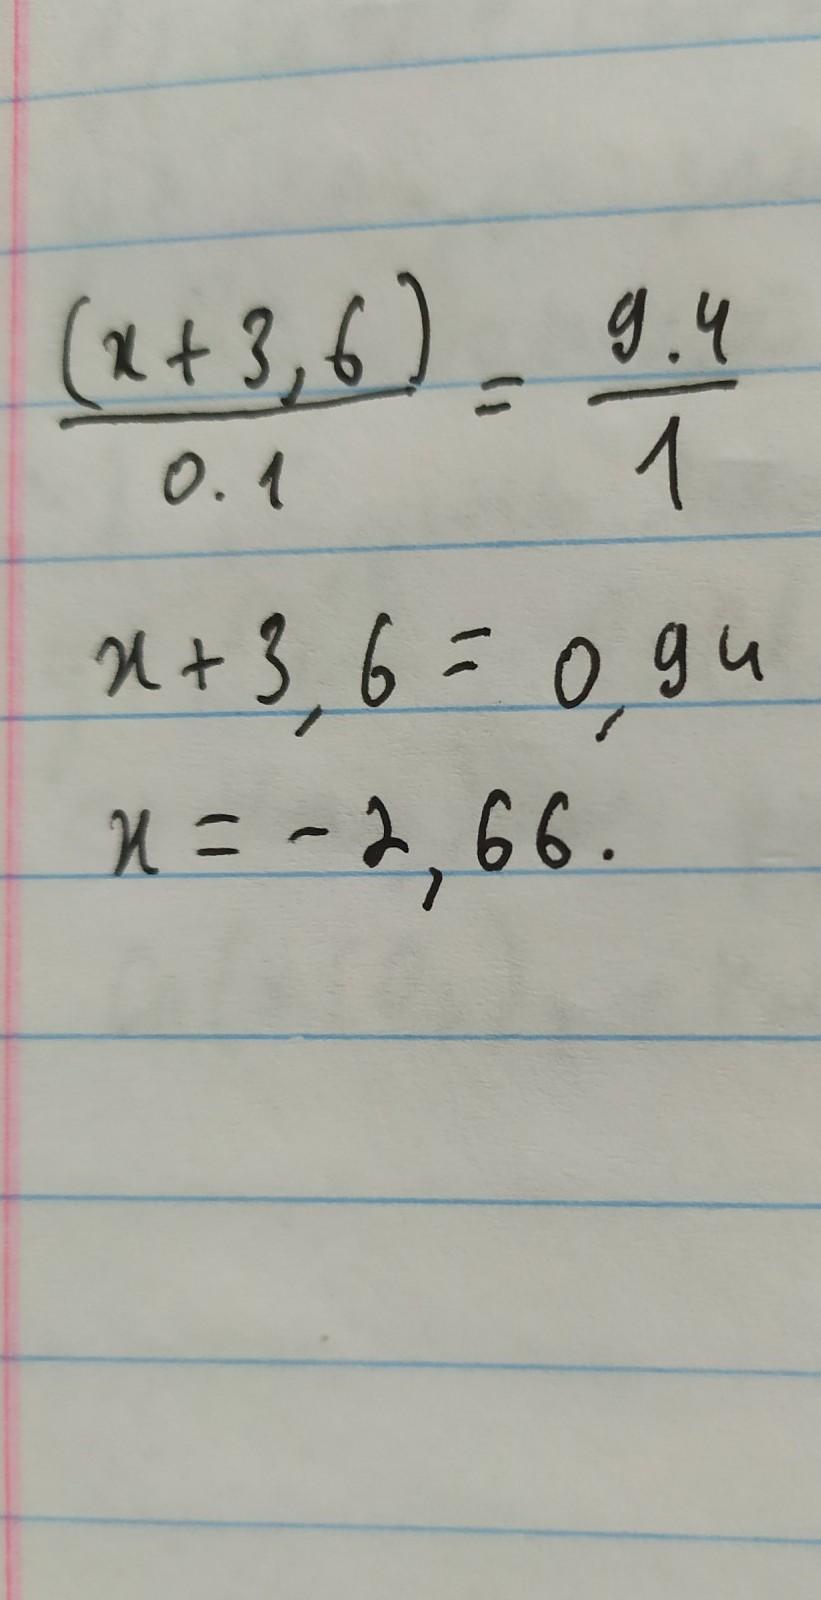 (x+3,6)/0.1 = 9.4/1
x+3,6=0,94
x=-2,66.